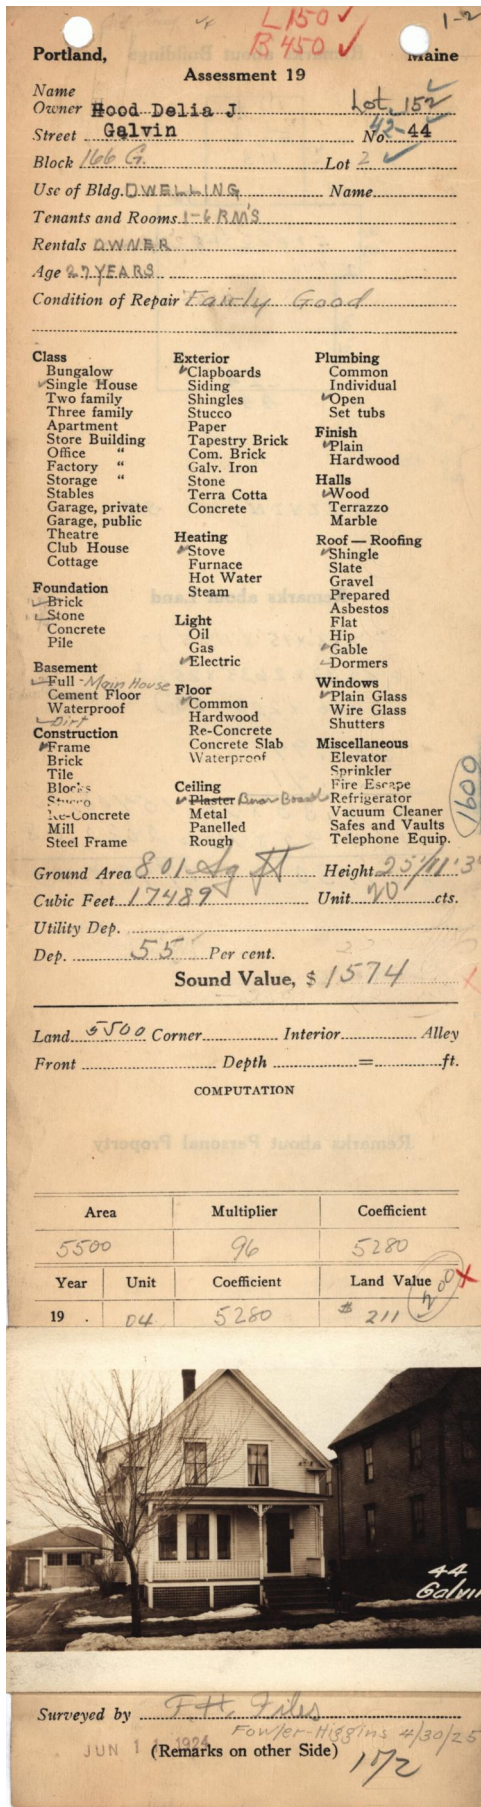 L 150 ✓
1-2
B 450 ✓
Portland, Maine
Assessment 19
Name
Owner Hood Delia J Lot 152
Street Galvin No. 42-44
Block 166 G. Lot 2
Use of Bldg. DWELLING Name
Tenants and Rooms 1-6 RM'S
Rentals OWNER
Age 27 YEARS
Condition of Repair Fairly Good
Class
Bungalow
✓ Single House
Two family
Three family
Apartment
Store Building
Office "
Factory "
Storage "
Stables
Garage, private
Garage, public
Theatre
Club House
Cottage
Foundation
✓ Brick
✓ Stone
Concrete
Pile
Basement
✓ Full - Main House
Cement Floor
Waterproof
✓ Dirt
Construction
✓ Frame
Brick
Tile
Blocks
Stucco
Re-Concrete
Mill
Steel Frame
Exterior
✓ Clapboards
Siding
Shingles
Stucco
Paper
Tapestry Brick
Com. Brick
Galv. Iron
Stone
Terra Cotta
Concrete
Heating
✓ Stove
Furnace
Hot Water
Steam
Light
Oil
Gas
✓ Electric
Floor
✓ Common
Hardwood
Re-Concrete
Concrete Slab
Waterproof
Ceiling
✓ Plaster Board
Metal
Panelled
Rough
Plumbing
Common
Individual
✓ Open
Set tubs
Finish
✓ Plain
Hardwood
Halls
✓ Wood
Terrazzo
Marble
Roof — Roofing
✓ Shingle
Slate
Gravel
Prepared
Asbestos
Flat
Hip
✓ Gable
✓ Dormers
Windows
✓ Plain Glass
Wire Glass
Shutters
Miscellaneous
Elevator
Sprinkler
Fire Escape
Refrigerator
Vacuum Cleaner
Safes and Vaults
Telephone Equip.
1600
Ground Area 801 Sq ft Height
Cubic Feet 17489 Unit 20 cts.
Utility Dep.
Dep. 55 Per cent.
Sound Value, $ 1574
Land 5500 Corner Interior Alley
Front Depth = ft.
COMPUTATION
Area Multiplier Coefficient
5500 96 5280
Year Unit Coefficient Land Value 200 X
19 . 04 5280 $ 211
44
Galvin
Surveyed by F.H. Files
Fowler-Higgins 4/30/25
JUN 1 1924 (Remarks on other Side)